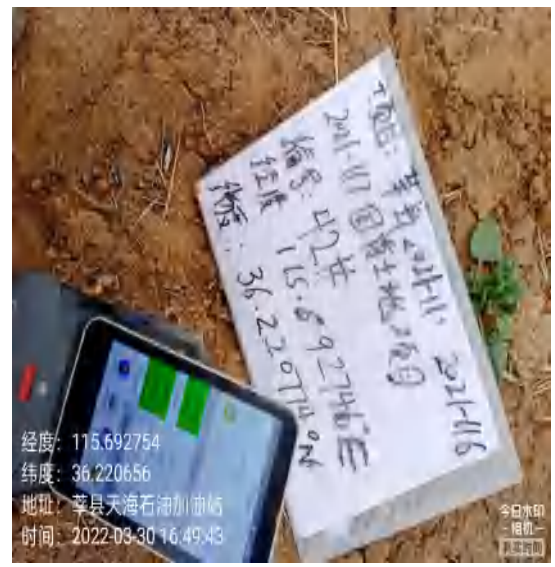 项目: 莘县2021-11
2021-116
2021-117 国有土地2项目
编号: 42#
经度 115.692746°E
纬度: 36.220774°N
经度: 115.692754
纬度: 36.220656
地址: 莘县天海石油加油站
时间: 2022-03-30 16:49:43
今日水印
-相机-
真实时间